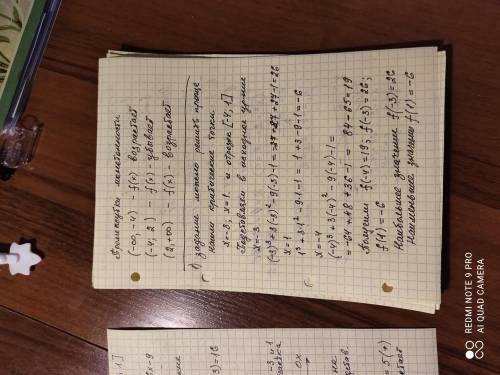 Промежутки монотонности
(-∞; -4) - f(x) возрастает
(-4; 2) - f(x) - убывает
(2; +∞) - f(x) - возрастает
1) задание можно решить проще
Нашли критические точки.
x = -3; x = 1 и отрезок [-4; 1]
Подставляем в исходное ур-ние
x = -3
(-3)³ + 3(-3)² - 9(-3) - 1 = -27 + 27 + 27 - 1 = 26
x = 1
1³ + 3·1² - 9·1 - 1 = 1 + 3 - 9 - 1 = -6
x = -4
(-4)³ + 3(-4)² - 9(-4) - 1 =
= -64 + 48 + 36 - 1 = 84 - 65 = 19
Получили f(-4) = 19; f(-3) = 26;
f(1) = -6
Наибольшее значение f(-3) = 26
Наименьшее значение f(1) = -6
REDMI NOTE 9 PRO
AI QUAD CAMERA